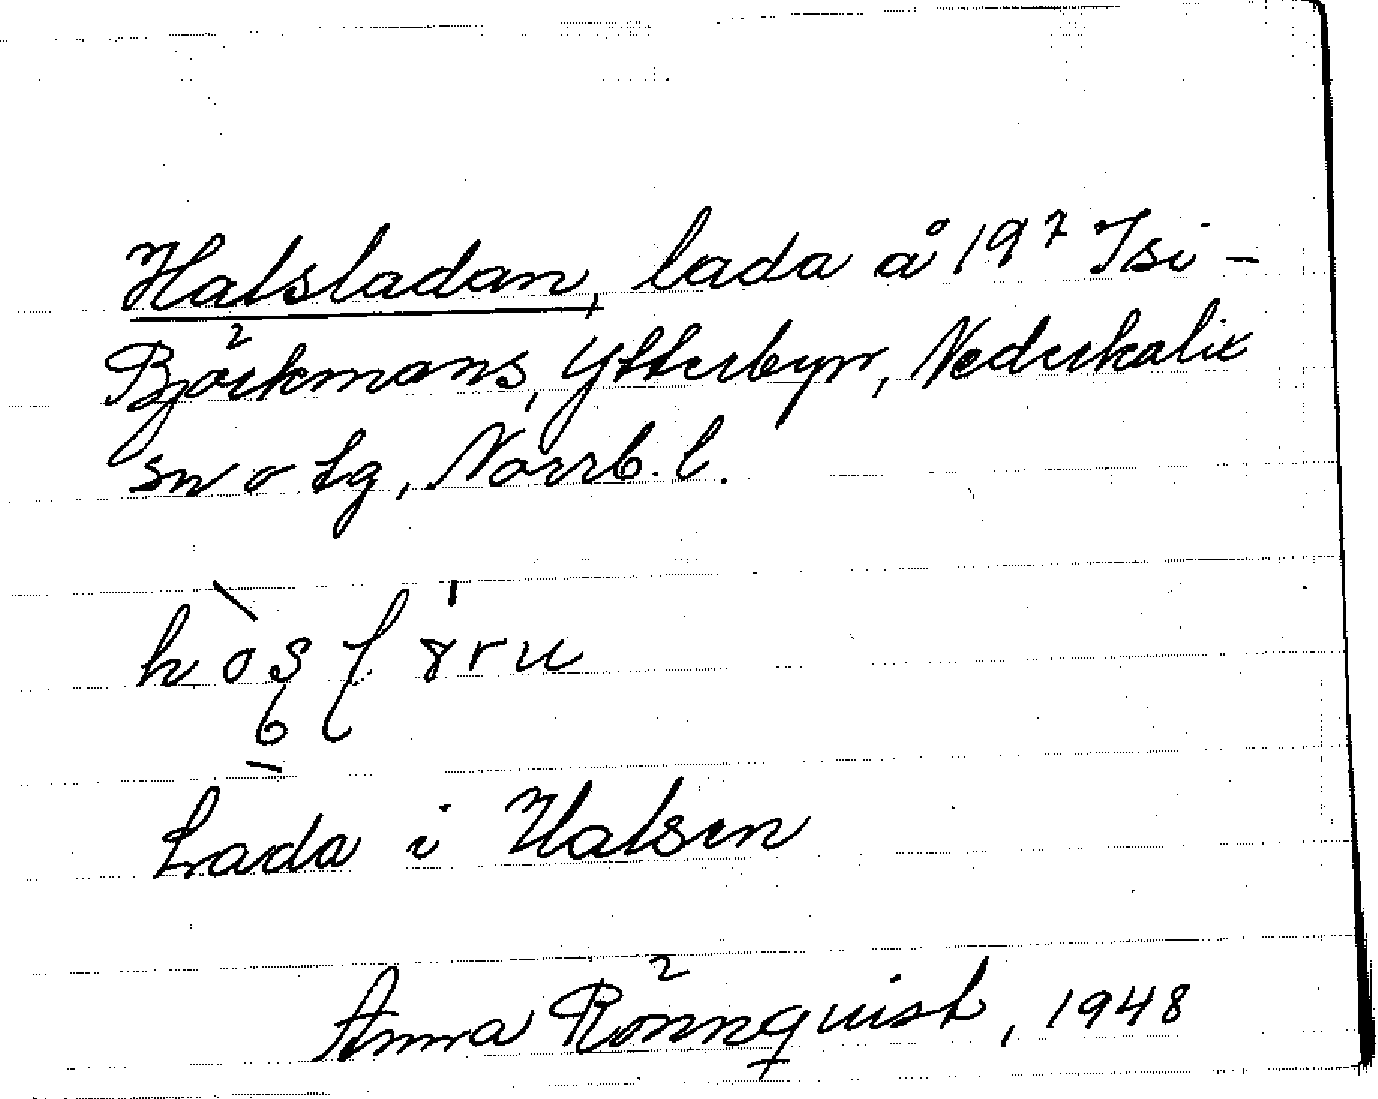 Halsladan, lada å 19⁷ Isi-
Björkmans, Ytterbyn, Nederkalix
sn o tg, Norrb. l.
Lada i Halsen
Anna Rönnquist, 1948